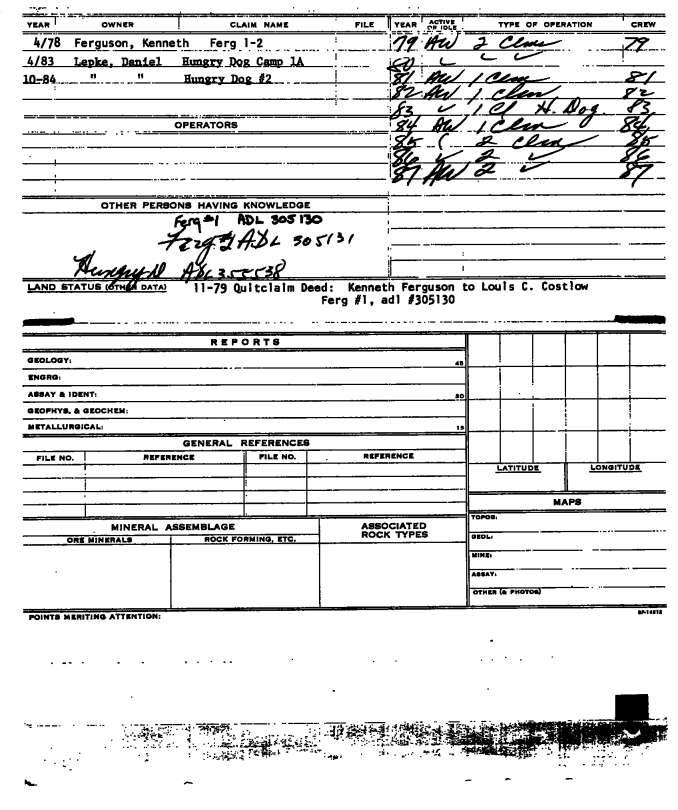 YEAR OWNER CLAIM NAME FILE YEAR ACTIVE OR IDLE TYPE OF OPERATION CREW
4/78 Ferguson, Kenneth Ferg 1-2 79 AW 2 Clms 79
4/83 Lepke, Daniel Hungry Dog Camp 1A 80
10-84 " " Hungry Dog #2 81 AW 1 Clm 81
82 AW 1 Clm 82
83 ✓ 1 Cl H. Dog 83
OPERATORS 84 AW 1 Clm 84
85 ( 2 Clm 85
86 ✓ 2 ✓ 86
87 AW 2 ✓ 87
OTHER PERSONS HAVING KNOWLEDGE
Ferg #1 ADL 305130
Ferg #2 ADL 305131
Hungry D ADL 355538
LAND STATUS (OTHER DATA) 11-79 Quitclaim Deed: Kenneth Ferguson to Louis C. Costlow
Ferg #1, adl #305130
REPORTS
GEOLOGY: 45
ENGRG:
ASSAY & IDENT: 30
GEOPHYS. & GEOCHEM:
METALLURGICAL: 15
GENERAL REFERENCES
FILE NO. REFERENCE FILE NO. REFERENCE
LATITUDE LONGITUDE
MAPS
MINERAL ASSEMBLAGE ASSOCIATED ROCK TYPES
ORE MINERALS ROCK FORMING, ETC.
TOPOG:
GEOL:
MINE:
ASSAY:
OTHER (& PHOTOS)
POINTS MERITING ATTENTION: